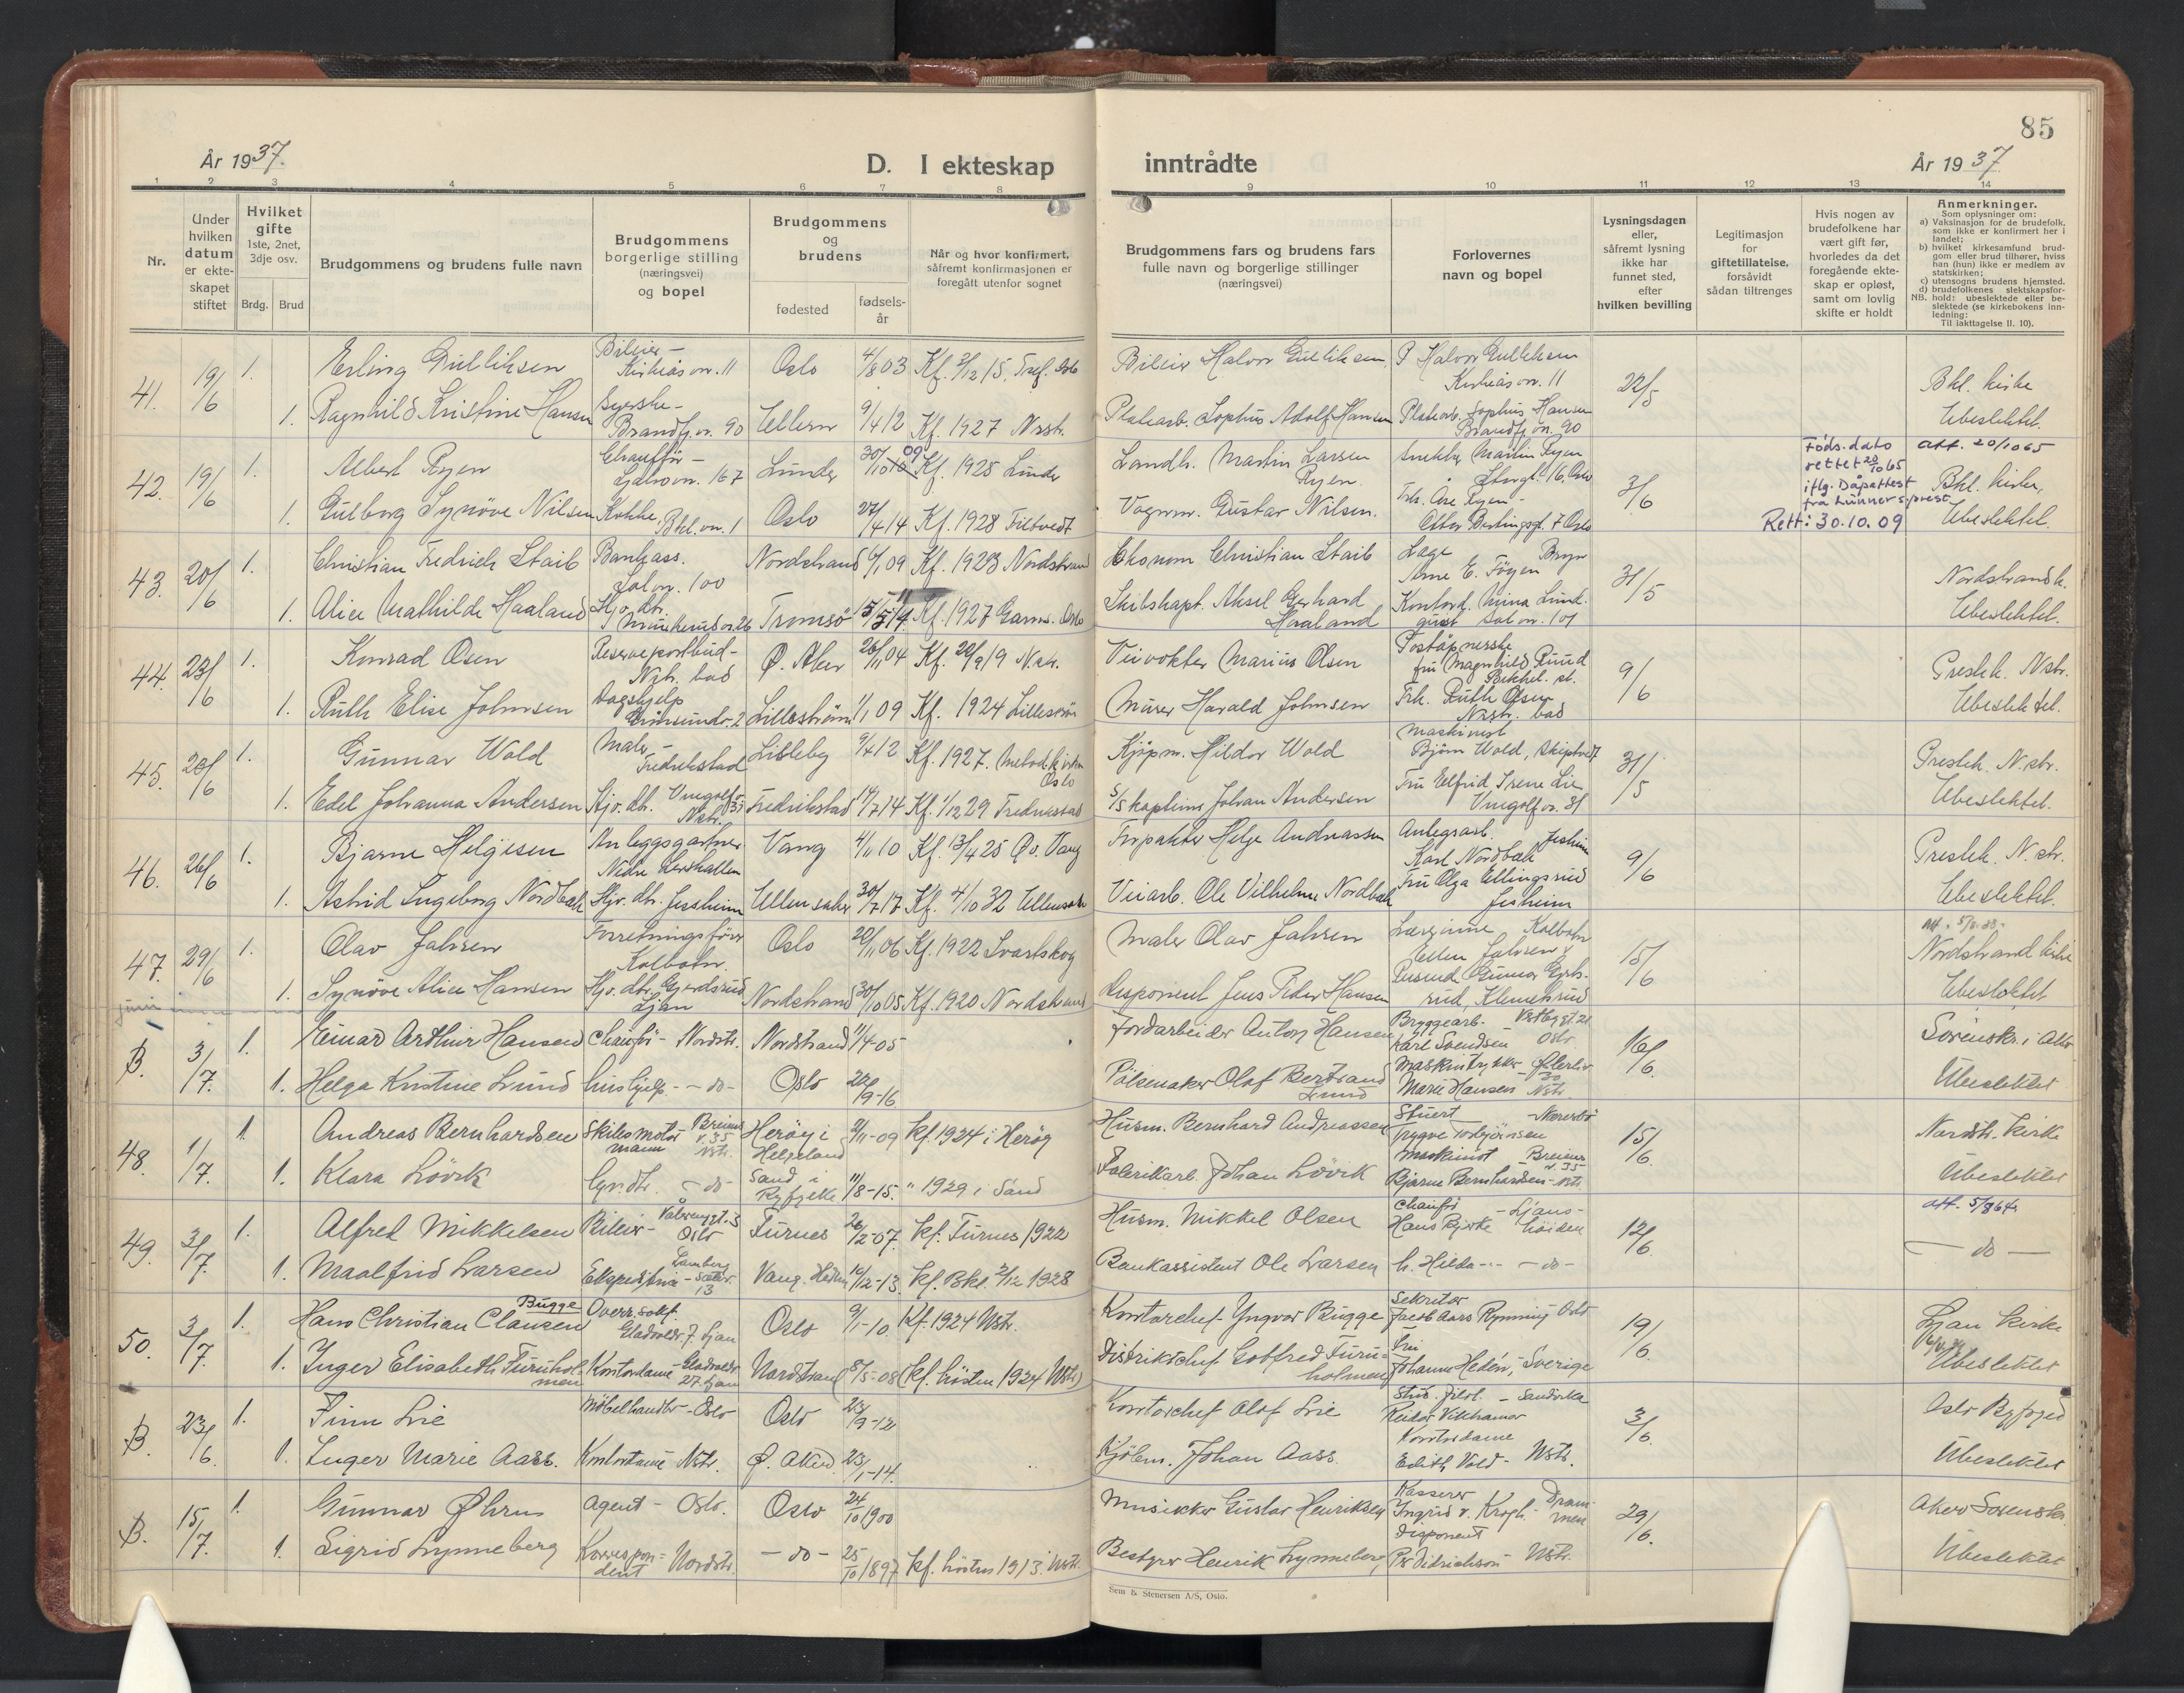 85
År 1937.
D. I ekteskap
inntrådte
År 1937
1 2 3 4 5 6 7 8 9 10 11 12 13 14
Nr.
Under hvilken datum er ekteskapet stiftet
Hvilket gifte 1ste, 2net, 3dje osv.
Brdg. Brud
Brudgommens og brudens fulle navn
Brudgommens borgerlige stilling (næringsvei) og bopel
Brudgommens og brudens
fødested
fødselsår
Når og hvor konfirmert, såfremt konfirmasjonen er foregått utenfor sognet
Brudgommens fars og brudens fars fulle navn og borgerlige stillinger (næringsvei)
Forlovernes navn og bopel
Lysningsdagen eller, såfremt lysning ikke har funnet sted, efter hvilken bevilling
Legitimasjon for giftetillatelse, forsåvidt sådan tiltrenges
Hvis nogen av brudefolkene har vært gift før, hvorledes da det foregående ekteskap er opløst, samt om lovlig skifte er holdt
Anmerkninger.
Som oplysninger om:
a) Vaksinasjon for de brudefolk, som ikke er konfirmert her i landet;
b) hvilket kirkesamfund brudgom eller brud tilhører, hviss han (hun) ikke er medlem av statskirken;
c) utensogns brudens hjemsted.
d) brudefolkenes slektskapsforhold: ubeslektede eller beslektede (se kirkebokens innledning;
NB.
Til iakttagelse II. 10).
41. 19/6 1. Erling Gulliksen Bileier - Kirkeåsvn. 11 Oslo 4/8 03 Kf. 5/12 15, Tref. Oslo Bileier Halvor Gulliksen P Halvor Gulliksen Kirkeåsvn. 11 22/5 Bkl. kirke
1. Ragnhild Kristine Hansen Syerske - Brandfj.vn. 90 Ullern 9/4 12 Kf. 1927 Nrstr. Platearb. Sophus Adolf Hansen Platearb. Sophus Hansen Brandfj.vn. 90 Ubeslektet.
42. 19/6 1. Albert Ryen Chauffør - Ljabrovn. 167 Lunder 30/10 10 09 Kf. 1925 Lunder Landh. Martin Larsen Ryen Snekker Martin Ryen Storgt. 16, Oslo 3/6 Føds.dato rettet 20/10 65 iflg. Dåpattest fra Lunner s.prest Rett: 30.10.09 att. 20/10 65 Bkl. kirke,
1. Gulborg Synöve Nilsen Kokke, Bkl.vn. 1 Oslo 27/4 14 Kf. 1928 Filtvedt Vognm. Gustav Nilsen. Frk. Åse Ryen - Ubeslektet.
43. 20/6 1. Christian Fredrich Staib Bankass. Solvn. 100 Nordstrand 6/1 09 Kf. 1923 Nordstrand Ekonom Christian Staib Lage Bryn Arne E. Föyen 31/5 Nordstrand k.
1. Alice Mathilde Haaland Hjv. dtr. Munkerudvn. 26 Tromsö 15/5 14. Kf. 1927 Garns. Oslo Skibskapt. Aksel Gerhard Haaland Kontord. Mina Lundquist Solvn. 101 Ubeslektet.
44. 23/6 1. Konrad Olsen Reservepostbud - Nstr. bad Ø. Aker 26/11 04 Kf. 20/9 19 N.str. Veivokter Marius Olsen Poståpnerske fru Magnhild Ruud Bekkel. st. 9/6 Prestek. Nstr.
1. Ruth Elise Johnsen Dagshjelp Grönsundv. 2 Lilleström 1/1 09 Kf. 1924 Lilleström Murer Harald Johnsen Frk. Ruth Olsen Nstr. bad Ubeslektet.
45. 20/6 1. Gunnar Wold Maler - Fredrikstad Lisleby 9/4 12 Kf. 1927. Metod. kirken Oslo Kjøpm. Hildor Wold Maskinist Bjørn Wold, Skiptvedt 31/5 Prestek. N.str.
1. Edel Johanna Andersen Hjv. dtr. Vingolfv. 31 Nstr. Fredrikstad 14/7 14 Kf. 1/12 29 Fredrikstad S/S kaptein Johan Andersen Fru Elfrid Irene Lie Vingolfvn. 31 Ubeslektet.
46. 26/6 1. Bjarne Helgesen Anleggsgartner Nedre Lerskallen Vang 4/11 10 Kf. 13/4 25 Ø. Vang Forpakter Helge Andreassen Anlegsarb. Karl Nordbæk Jesheim 9/6 Prestek. N.str.
1. Astrid Ingeborg Nordbæk Hjv. dtr. Jessheim Ullensaker 30/7 17 Kf. 4/10 32 Ullensaker Veiarb. Ole Vilhelm Nordbæk Fru Olga Ellingsrud Jesheim Ubeslektet.
47. 29/6 1. Olav Jahren Forretningsförer Kolbotn. Oslo 20/11 06 Kf. 1922 Svartskog Maler Olav Jahren Lærerinne Kolbotn Ellen Jahren 15/6 Nordstrand kirke
1. Synöve Alice Hansen Hjv. dtr. Gjerdsrud Ljan Nordstrand 30/10 05 Kf. 1920 Nordstrand Disponent Jens Peder Hansen Gunnar Gjersrud, Klemetsrud Ubeslektet
B. 3/7. 1. Einar Arthur Hansen Chauför - Nordstr. Nordstrand 11/4-05 Jordarbeider Anton Hansen Bryggearb. Karl Svendsen - Oslo 16/6. Sorenskr. i Aker
1. Helga Kristine Lund hushjelp - do - Oslo 22/9-16 Pölsemaker Olaf Bertrand Lund Maskintrykker Marie Hansen Nstr. Ubeslektet
48. 1/7. 1 Andreas Bernhardsen Skibsmotormann Breiens v. 35 Nstr. Herøy i Helgeland 2/11-09 Kf. 1924 i Herøy Husm. Bernhard Andreassen Stuert Trygve Torbjørnsen 15/6. Nordstr. Kirke
1. Klara Lövik Syerske - do - Sand i Ryfylke 11/8-15. " 1929 i Sand Fabrikarb. Johan Lövik Maskinist Breiens v. 35 Bjarne Bernhardsen - Nstr. Ubeslektet
49. 3/7. 1. Alfred Mikkelsen Bileier - Vålerengt. 3 Oslo Furnes 26/2-07. Kf. Furnes 1922 Husm. Mikkel Olsen Chauför Hans Bjerke - Ljanshøiden 12/6. att. 5/8 64
1. Maalfrid Larsen Ekspeditrice - Lambersætervn. 13 Vang. Hedm. 10/12-13. Kf. Bkl. 2/12 1928 Bankassistent Ole Larsen h. Hilda - do - - do -
50. 3/7. 1. Hans Christian Clausen Bugge Overr.sakf. Gladvollv. 7. Ljan Oslo 9/1-10. Kf. 1924 Nstr. Kontorchef Yngvar Bugge Sekretær Jacob Aars Rynning Oslo 19/6. Ljan Kirke
1. Inger Elisabeth Furuholmen Kontordame - Gladvollv. 27. Ljan Nordstrand 8/5-08 (Kf. hösten 1924 Nstr.) Distriktschef Gotfred Furuholmen Fru Johanne Hedén, Sverige Ubeslektet
B. 23/6. 1. Finn Lie Möbelhandler - Oslo Oslo 23/9-12 Kontorchef Olaf Lie Stud. filol. - Sandvika Reidar Vikhamar 3/6. Oslo Byfoged
1. Inger Marie Aass. Kontordame Nstr. Ø. Aker. 23/1-14. Kjøbm. Johan Aass. Kontordame Edith Vold - Nstr. Ubeslektet
B. 15/7. 1. Gunnar Øhrn Agent - Oslo. Oslo 24/10 1900 Musiker Gustav Henriksen Kasserer Ingrid v. Krogh - Drammen 29/6. Aker Sorenskr.
1. Sigrid Lynneberg Korrespondent Nordstr. - do - 25/10 1897 Kf. hösten 1913. Nstr. Bestyrer Henrik Lynneberg, Disponent Per Didrichson - Nstr. Ubeslektet
Sem & Stenersen A/S, Oslo.